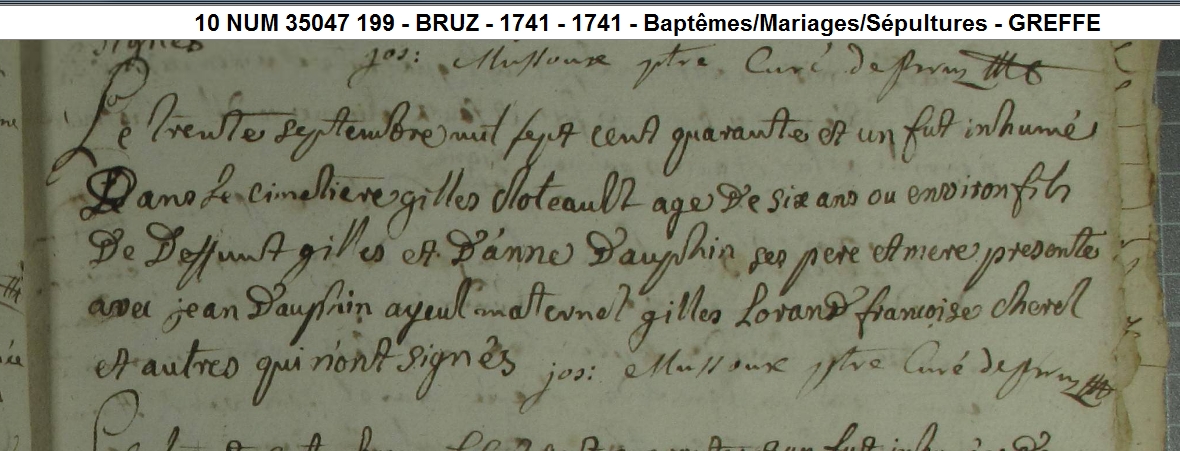 10 NUM 35047 199 - BRUZ - 1741 - 1741 - Baptêmes/Mariages/Sépultures - GREFFE
signés
jos: Mussoux ptre Curé de Bruz
Le trente septembre mil sept cent quarante et un fut inhumé
Dans Le cimetiere gilles cloteault age De six ans ou environ fils
De Deffunt gilles et D'anne Dauphin ses pere et mere presente
avec jean Dauphin ayeul maternel gilles Lorand francoise cherel
et autres qui n'ont signés jos: Mussoux ptre Curé de Bruz